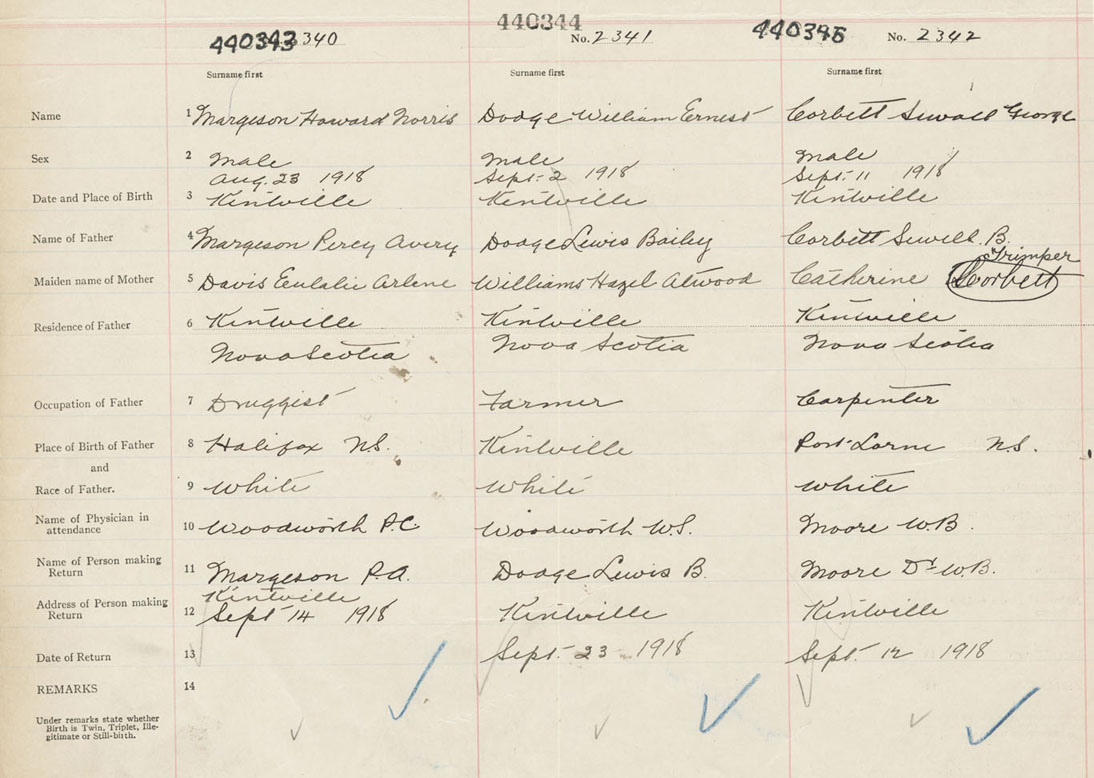 440343 340 440344 No. 2341 440345 No. 2342
Surname first Surname first Surname first
Name 1 Margeson Howard Norris Dodge William Ernest Corbett Sewall George
Sex 2 Male Male Male
Aug. 23 1918 Sept. 2 1918 Sept. 11 1918
Date and Place of Birth 3 Kentville Kentville Kentville
Name of Father 4 Margeson Percy Avery Dodge Lewis Bailey Corbett Sewell B.
Trimper
Maiden name of Mother 5 Davis Eulalie Arlene Williams Hazel Atwood Catherine Corbett
Residence of Father 6 Kentville Kentville Kentville
Nova Scotia Nova Scotia Nova Scotia
Occupation of Father 7 Druggist Farmer Carpenter
Place of Birth of Father 8 Halifax N.S. Kentville Port Lorne N.S.
and
Race of Father. 9 White White White
Name of Physician in
attendance 10 Woodworth P.C. Woodworth W.S. Moore W.B.
Name of Person making
Return 11 Margeson P.A. Dodge Lewis B. Moore Dr W.B.
Kentville
Address of Person making
Return 12 Sept 14 1918 Kentville Kentville
Date of Return 13 Sept. 23 1918 Sept. 12 1918
REMARKS 14
Under remarks state whether
Birth is Twin, Triplet, Ille-
gitimate or Still-birth.